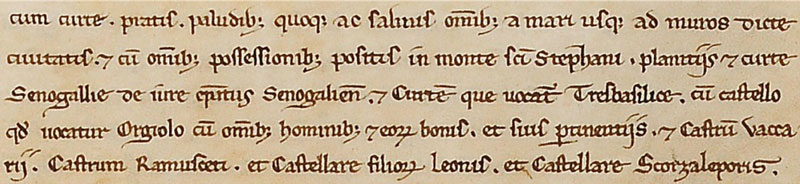 cum curte. pratis. paludib; quoq; ac saliuis omib; a mari usq; ad muros dicte
ciuitatis. ⁊ cū omib; possessionib; positis in monte sc̄i Stephani, plantijs ⁊ curte
Senogallie de iure ep̄atus Senogalien̄. ⁊ Curtē que uocat᷑ Tresbasilice. cū castello
qd̄ uocatur Orgiolo cū omib; hominib; ⁊ eoꝝ bonis. et suis ꝑtinentijs. ⁊ Castrū vacca
rij. Castrum Ramusceti. et Castellare filioꝝ Leonis. et Castellare Scorzaleporis.